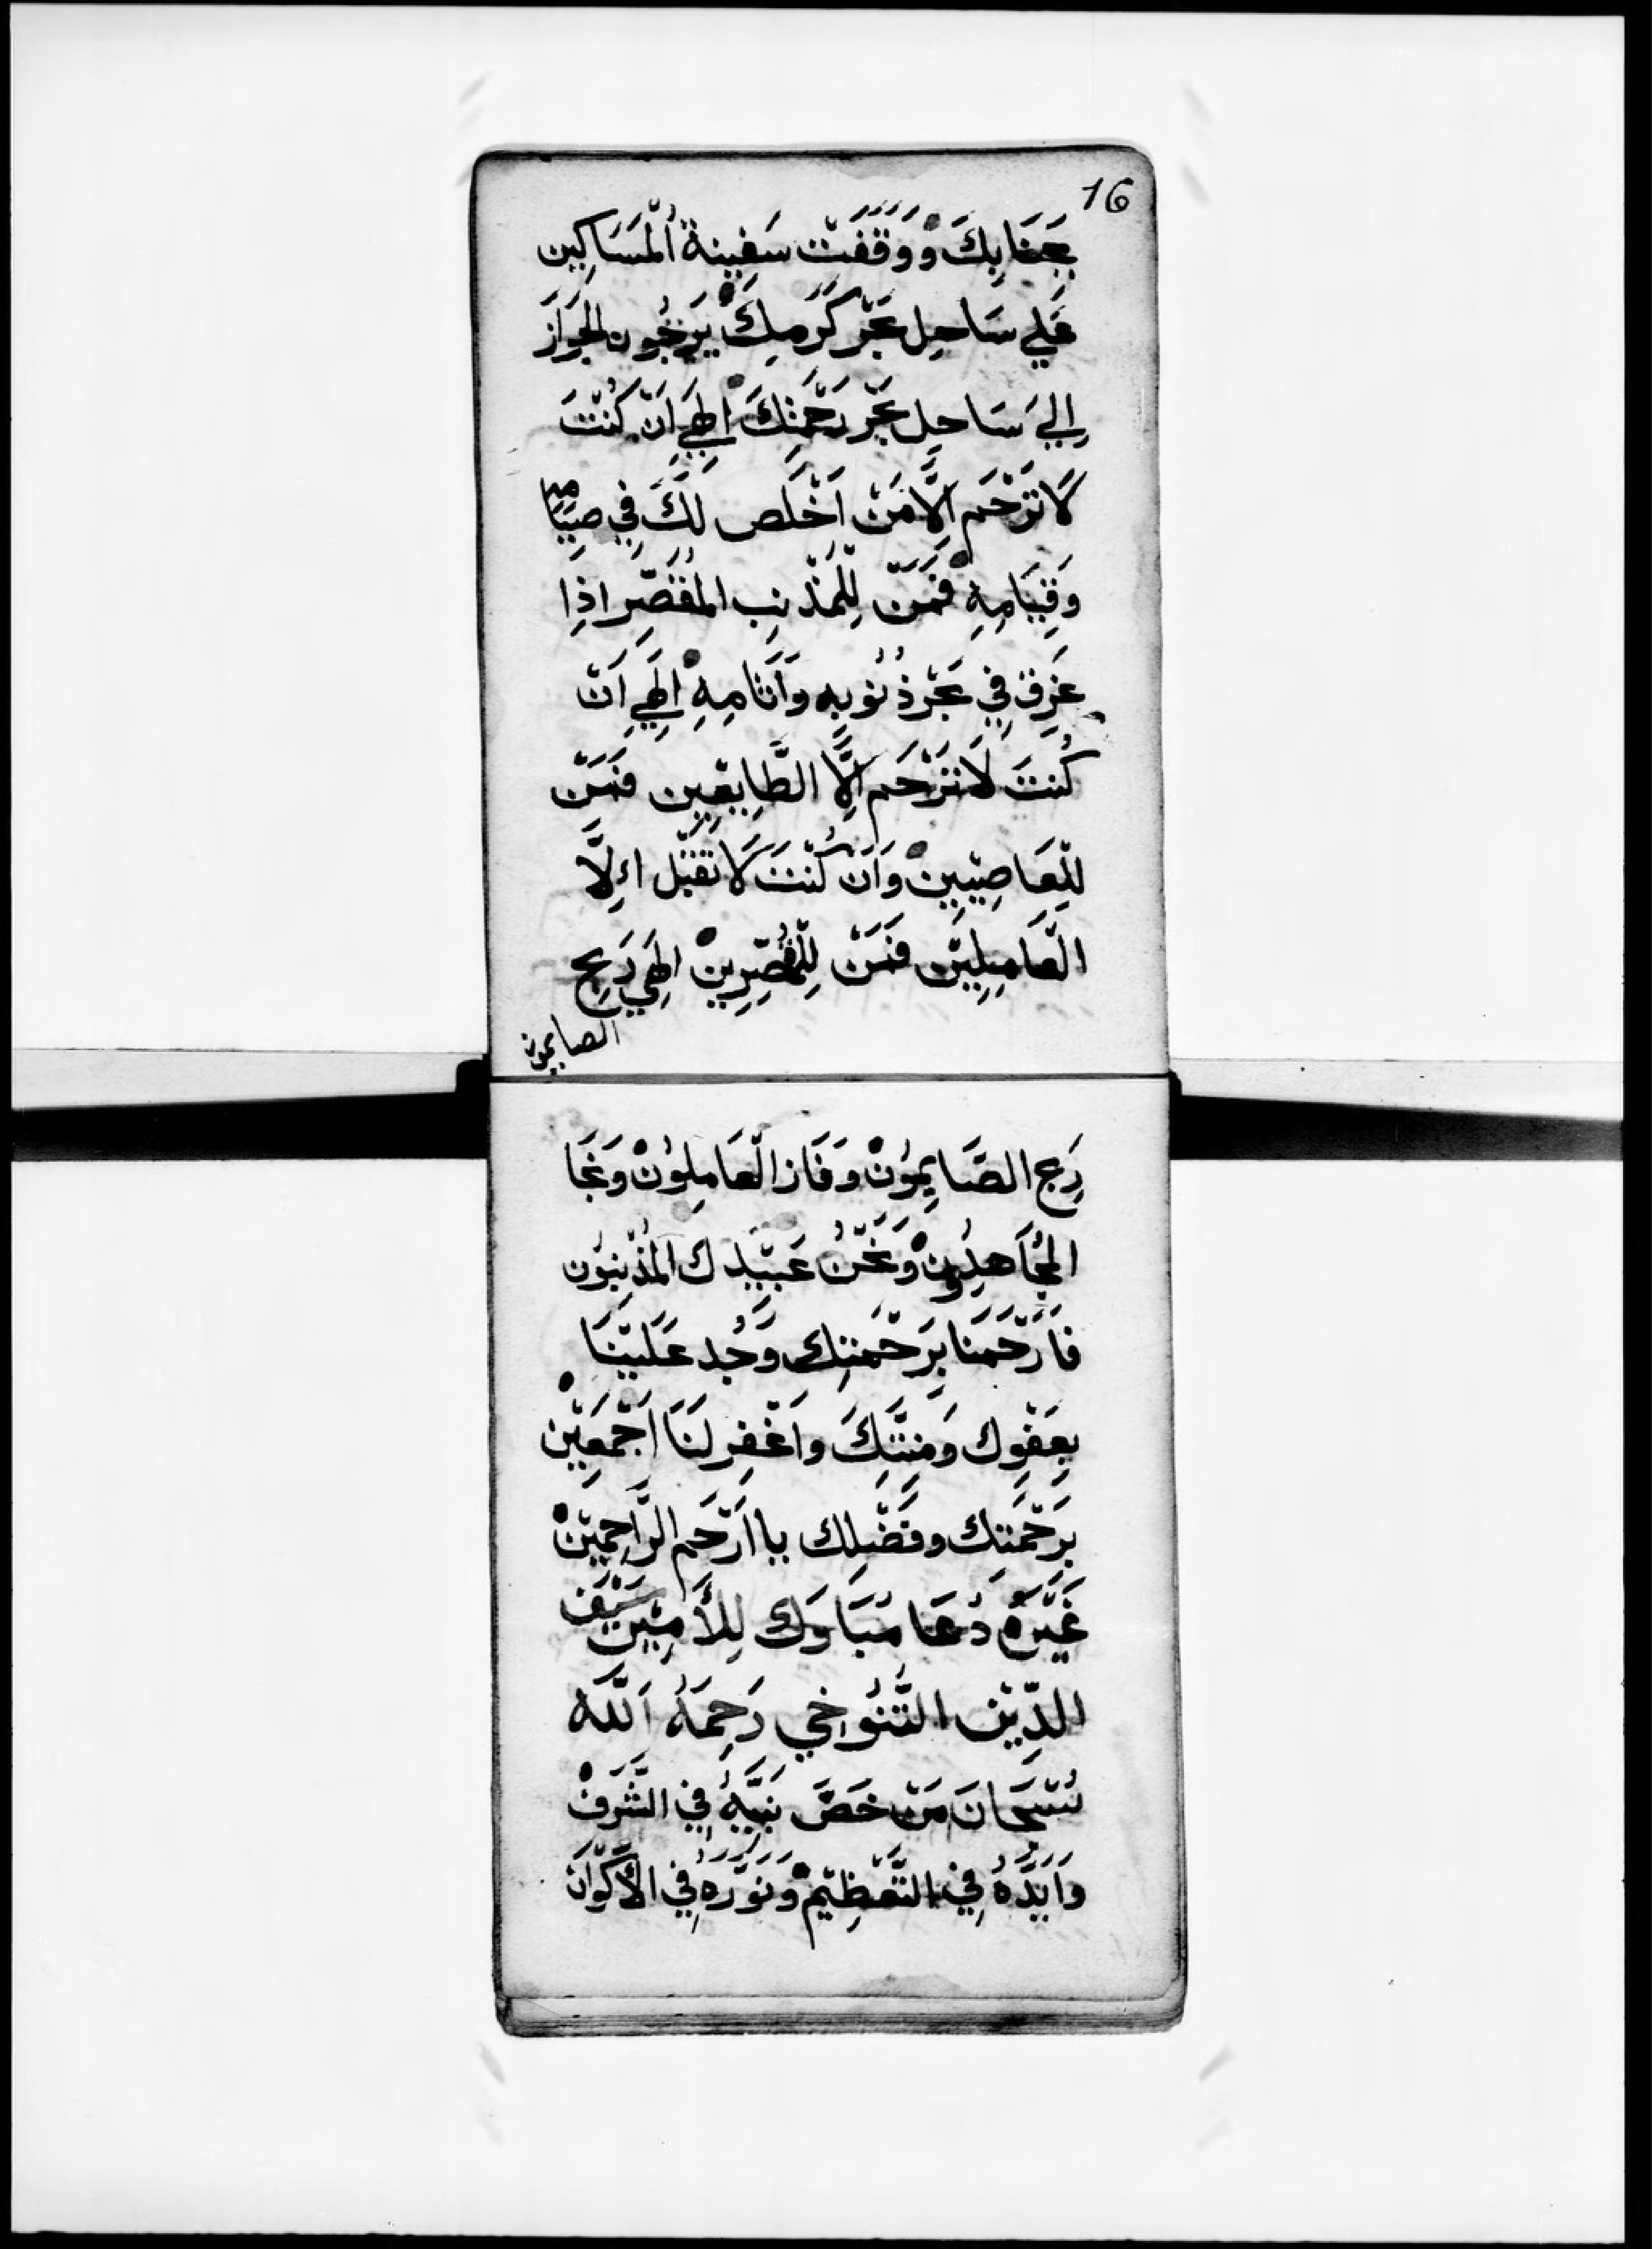 16
بِجَنَابِكَ وَوَقَفَتْ سَفِينَةُ الْمَسَاكِين
عَلي سَاحِل بَحْر كَرَمِكَ يَرْجُون الجَوَازَ
اِلي سَاحِل بَحْر رَحْمَتِكَ اِلهِي اِنْ كُنْتَ
لَا تَرْحَم اِلَّا مَنْ اَخْلَص لَكَ في صِيَامِهِ
وَقِيَامِهِ فَمَنْ لِلْمُذْنِب المُقَصِّر اِذَا
غَرِقَ فِي بَحْر ذُنُوبِه وَاَثَامِهِ اِلَهِي اِنْ
كُنتَ لَا تَرْحَم اِلَّا الطَّايِعِين فَمَنْ
لِلْعَاصِيين وَاِنْ كُنْتَ لَا تَقْبَل اِلَّا
الْعَامِلِيْن فَمَنْ لِلْمُقَصِّرِينْ اِلَهِي رَبِح
الصايمون
رَبِح الصَّايِمُونْ وَفَاز الْعَامِلوُنْ وَنَجَا
المُجَاهِدُونْ وَنَحْنُ عَبِيْدك المُذْنِبُون
فَارْحَمْنَا بِرَحْمَتِك وَجُد عَلَيْنَا
بِعَفْوِك وَمِنَّتِكَ وَاغْفِر لَنَا اَجْمَعِيْن
بِرَحْمَتِك وَفَضْلِك يا اَرْحَم الرَّاحِمِيْن
غَيْرَهُ دُعَا مُبَارَك لِلأَمِيْن سَيْف
الدِّيْن التَّنُوخي رَحِمَهُ اَللَّه
سُبْحَانَ مَنْ خَصَّ نَبِيَّهُ فِي الشَّرَفْ
وَاَيَّدَهُ فِي التَّعْظِيْم وَنَوَّرَهُ فِي الأَكْوَان